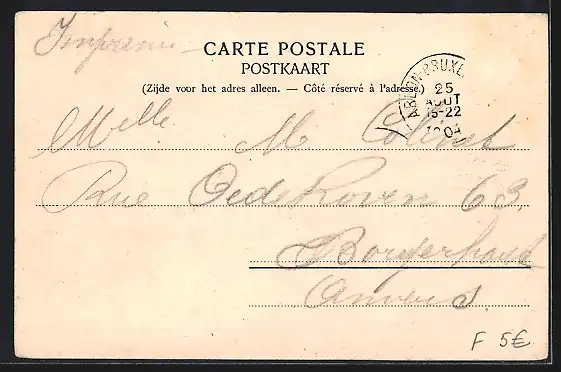 Imprimé
CARTE POSTALE
POSTKAART
(Zijde voor het adres alleen. — Côté réservé à l'adresse.)
25
AOUT
15-22
1904
Melle M. Colinet
Rue Oedekoven 63,
Borgerhout
Anvers
F 5€